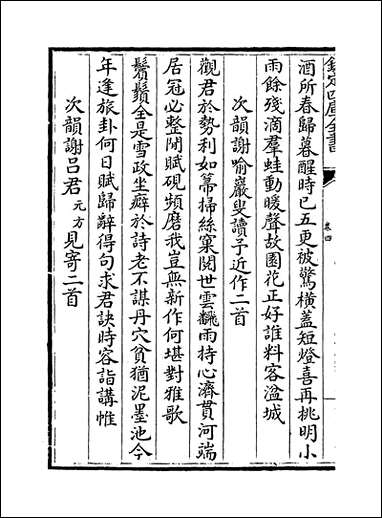 欽定四庫全書
卷四
酒所春歸暮醒時已五更被驚橫蓋短燈喜再挑明小
雨餘殘滴羣蛙動暖聲故園花正好誰料客湓城
次韻謝喻巖叟讀予近作二首
觀君於勢利如帚掃絲窠閱世雲飜雨持心濟貫河端
居冠必整閒賦硯頻磨我豈無新作何堪對雅歌
鬢鬚全是雪政坐癖於詩老不諶丹穴貧猶泥墨池今
年逢旅卦何日賦歸辭得句求君訣時容詣講帷
次韻謝呂君元方見寄二首